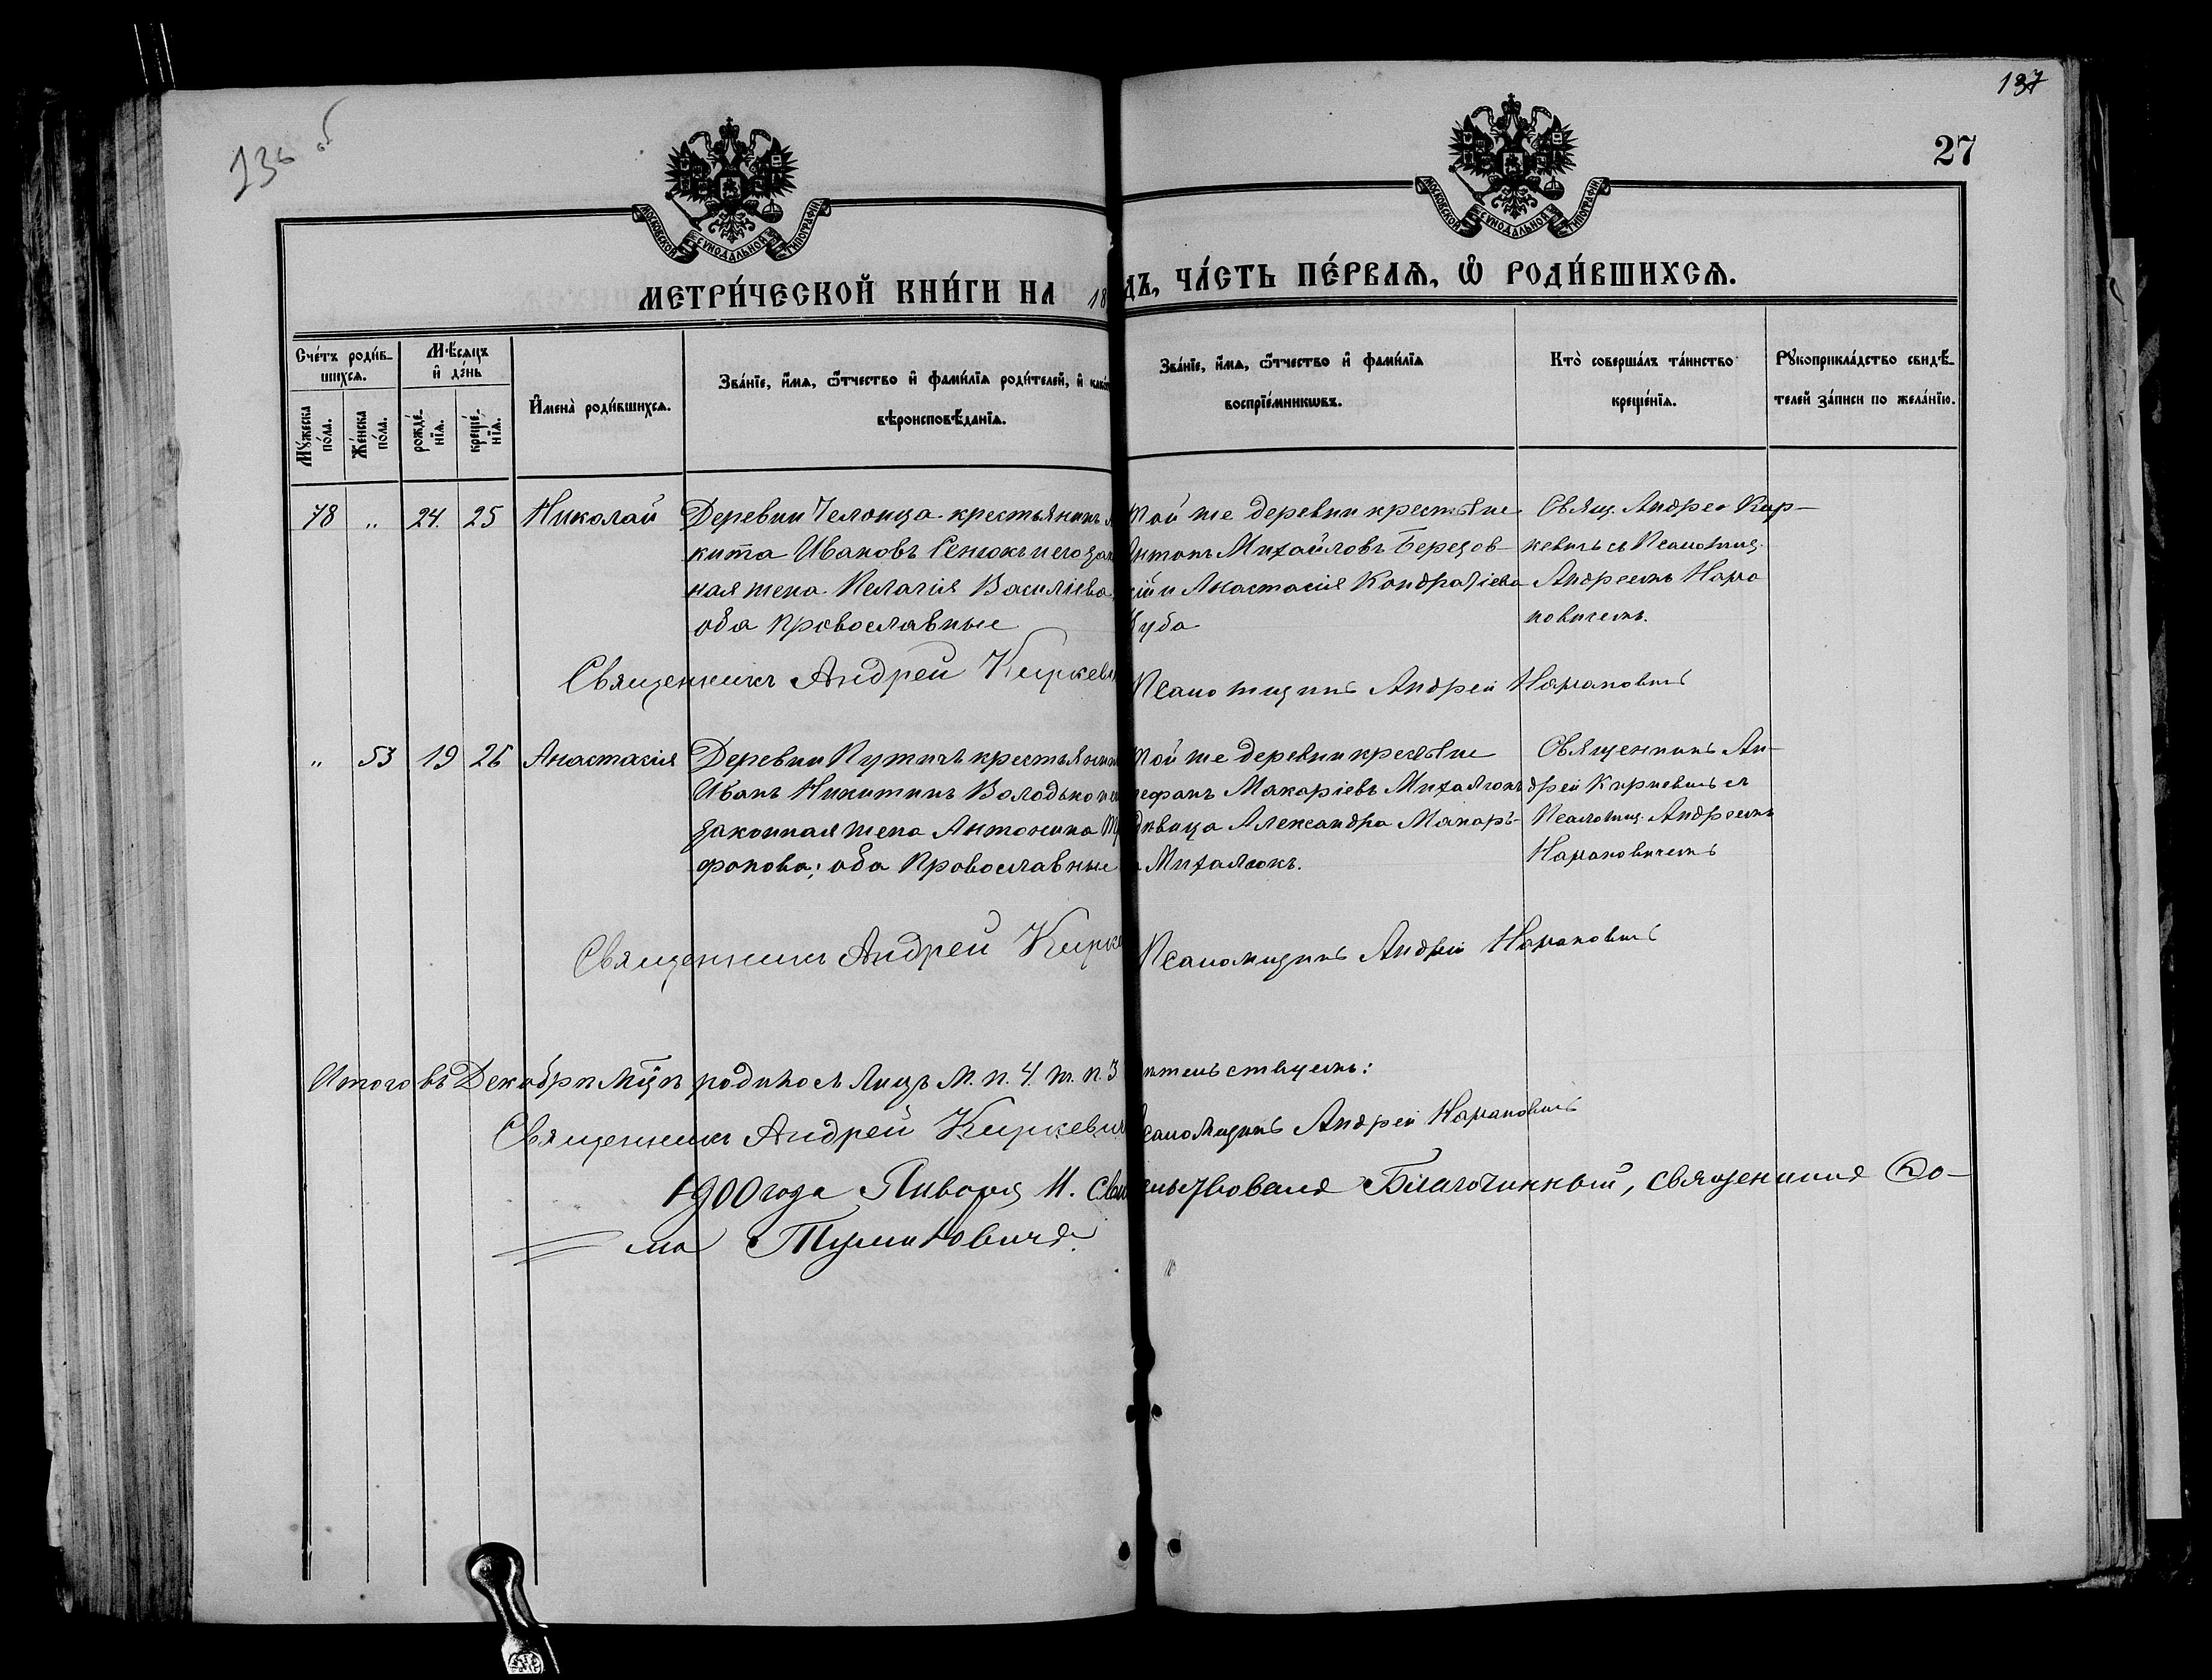 136 об
137
27
МОСКОВСКОЙ СУНОДАЛЬНОЙ ТИПОГРАФІИ
МОСКОВСКОЙ СУНОДАЛЬНОЙ ТИПОГРАФІИ
МЕТРИ́ЧЕСКОЙ КНИ́ГИ НА 18
ДЪ, ЧА́СТЬ ПЕ́РВАѦ, Ѡ҆ РОДИ́ВШИХСѦ.
Сче́тъ роди́вшихсѧ.
Мꙋ́жеска по́ла.
Же́нска по́ла.
Мѣ́сѧцъ и҆ де́нь
рожде́нїѧ.
креще́нїѧ.
И҆мена̀ роди́вшихсѧ.
Зва́нїе, и҆́мѧ, ѻ҆́тчество и҆ фами́лїѧ роди́телей, и҆
вѣроисповѣ́данїѧ.
Зва́нїе, и҆́мѧ, ѻ҆́тчество и҆ фами́лїѧ
воспрїе́мникѡвъ.
Кто̀ соверша́лъ та́инство
креще́нїѧ.
Рꙋкоприкла́дство свидѣ́-
телей за́писи по жела́нїю.
78 „ 24. 25 Николай Деревни Челонца крестьянинъ
кита Ивановъ Сенюкъ и его зак
ная жена Пелагія Васильева
оба православные
Той же деревни крестьяне
Антонъ Михайловъ Березов-
сій и Анастасія Кондратіева
Куба
Свящ. Андрей Кир-
кевичъ съ Псаломщ.
Андреемъ Нара
новичемъ.
Священникъ Андрей Киркеви
Псаломщикъ Андрей
„ 53 19 26 Анастасія Деревни Путичъ крестьянин
Иванъ Никитинъ Володько и ег
законная жена Антонина Тр
фонова; оба Православные
Той же деревни крестьяне
тефанъ Макаріевъ Михалюкъ
дѣвица Александра Макарь-
Михалюкъ.
Священникъ Ан-
дрей Киркевичъ съ
Псаломщ. Андреемъ
Священникъ Андрей Кирке
Псаломщикъ Андрей
Итого въ Декабрѣ мцѣ родилось лицъ м. п. 4. ж. п. 3
тельствуемъ:
Священникъ Андрей Киркевич
саломщикъ Андрей
1900 года Января 11. Свид
ельствовалъ Благочинный, священникъ Ѳо-
ма